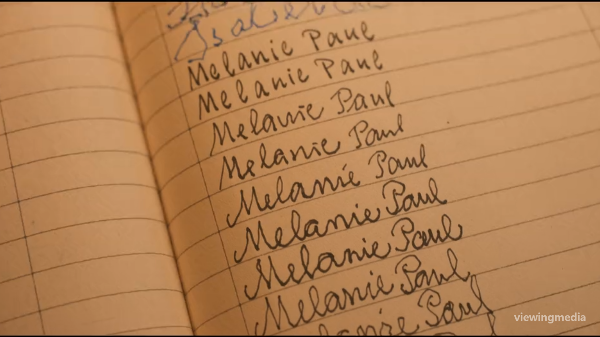 Melanie Paul
Melanie Paul
Melanie Paul
Melanie Paul
Melanie Paul
Melanie Paul
Melanie Paul
Melanie Paul
Melanie Paul
viewingmedia